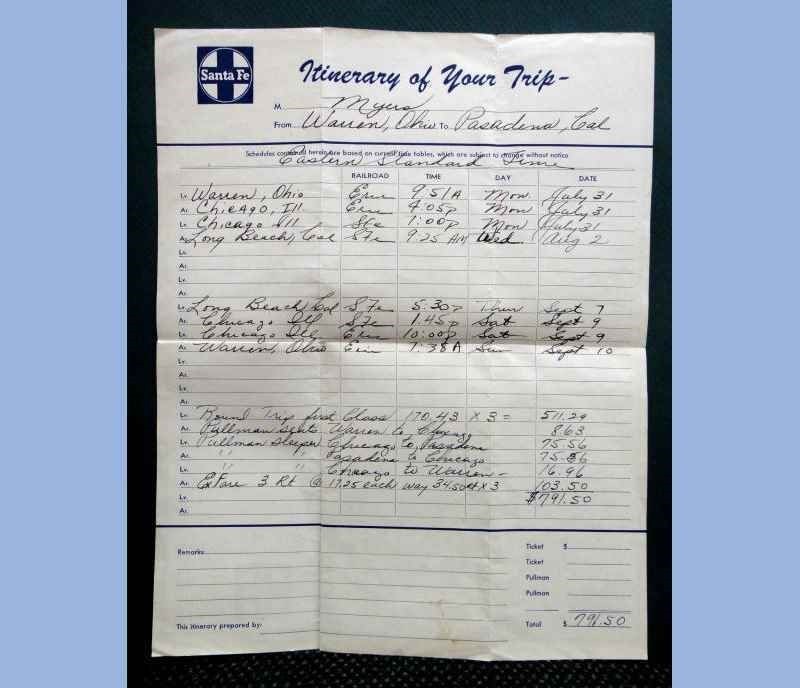 Santa Fe
Itinerary of Your Trip-
M Myers
From Warren, Ohio To Pasadena, Cal
Schedules contained herein are based on current time tables, which are subject to change without notice
Eastern Standard Time
RAILROAD TIME DAY DATE
Lv. Warren, Ohio Erie 9:51A Mon July 31
Ar. Chicago, Ill. Erie 4:05p Mon July 31
Lv. Chicago Ill Sfe 1:00p Mon July 31
Ar. Long Beach, Cal SFe 9:25 AM Wed. Aug 2
Lv.
Ar.
Lv.
Ar.
Lv. Long Beach, Cal SFe 5:30p Thur Sept 7
Ar. Chicago Ill SFe 1:45p Sat Sept 9
Lv. Chicago Ill Erie 10:00p Sat Sept 9
Ar. Warren, Ohio Erie 7:38A Sun Sept 10
Lv.
Ar.
Lv.
Ar.
Lv. Round Trip first Class 170.43 x 3 = 511.29
Ar. Pullman seats Warren to Chicago 8.63
Lv. Pullman Sleeper Chicago to Pasadena 75.56
Ar. " " Pasadena to Chicago 75.56
Lv. " " Chicago to Warren - 16.96
Ar. Ex Fare 3 Rt @ 17.25 each way 34.50 x 3 103.50
Lv. $791.50
Ar.
Remarks:
Ticket $
Ticket
Pullman
Pullman
This itinerary prepared by:
Total $ 791.50